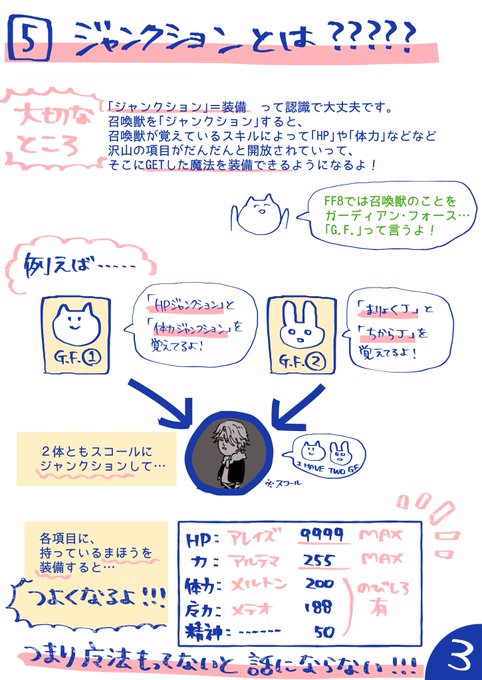 5 ジャンクションとは?????
大切な
ところ
「ジャンクション」=装備 って認識で大丈夫です。
召喚獣を「ジャンクション」すると、
召喚獣が覚えているスキルによって「HP」や「体力」などなど
沢山の項目がだんだんと開放されていって、
そこにGETした魔法を装備できるようになるよ!
FF8では召喚獣のことを
ガーディアン・フォース…
「G.F.」って言うよ!
例えば……
G.F.①
「HPジャンクション」と
「体力ジャンクション」を
覚えてるよ!
G.F.②
「まりょくJ」と
「ちからJ」を
覚えてるよ!
2体ともスコールに
ジャンクションして…
I HAVE TWO GF
スコール
各項目に、
持っているまほうを
装備すると…
つよくなるよ!!!
HP: アレイズ 9999 MAX
力: アルテマ 255 MAX
体力: メルトン 200
魔力: メテオ 188
精神: ------ 50
のびしろ
有
つまり魔法もってないと話にならない!!!
3